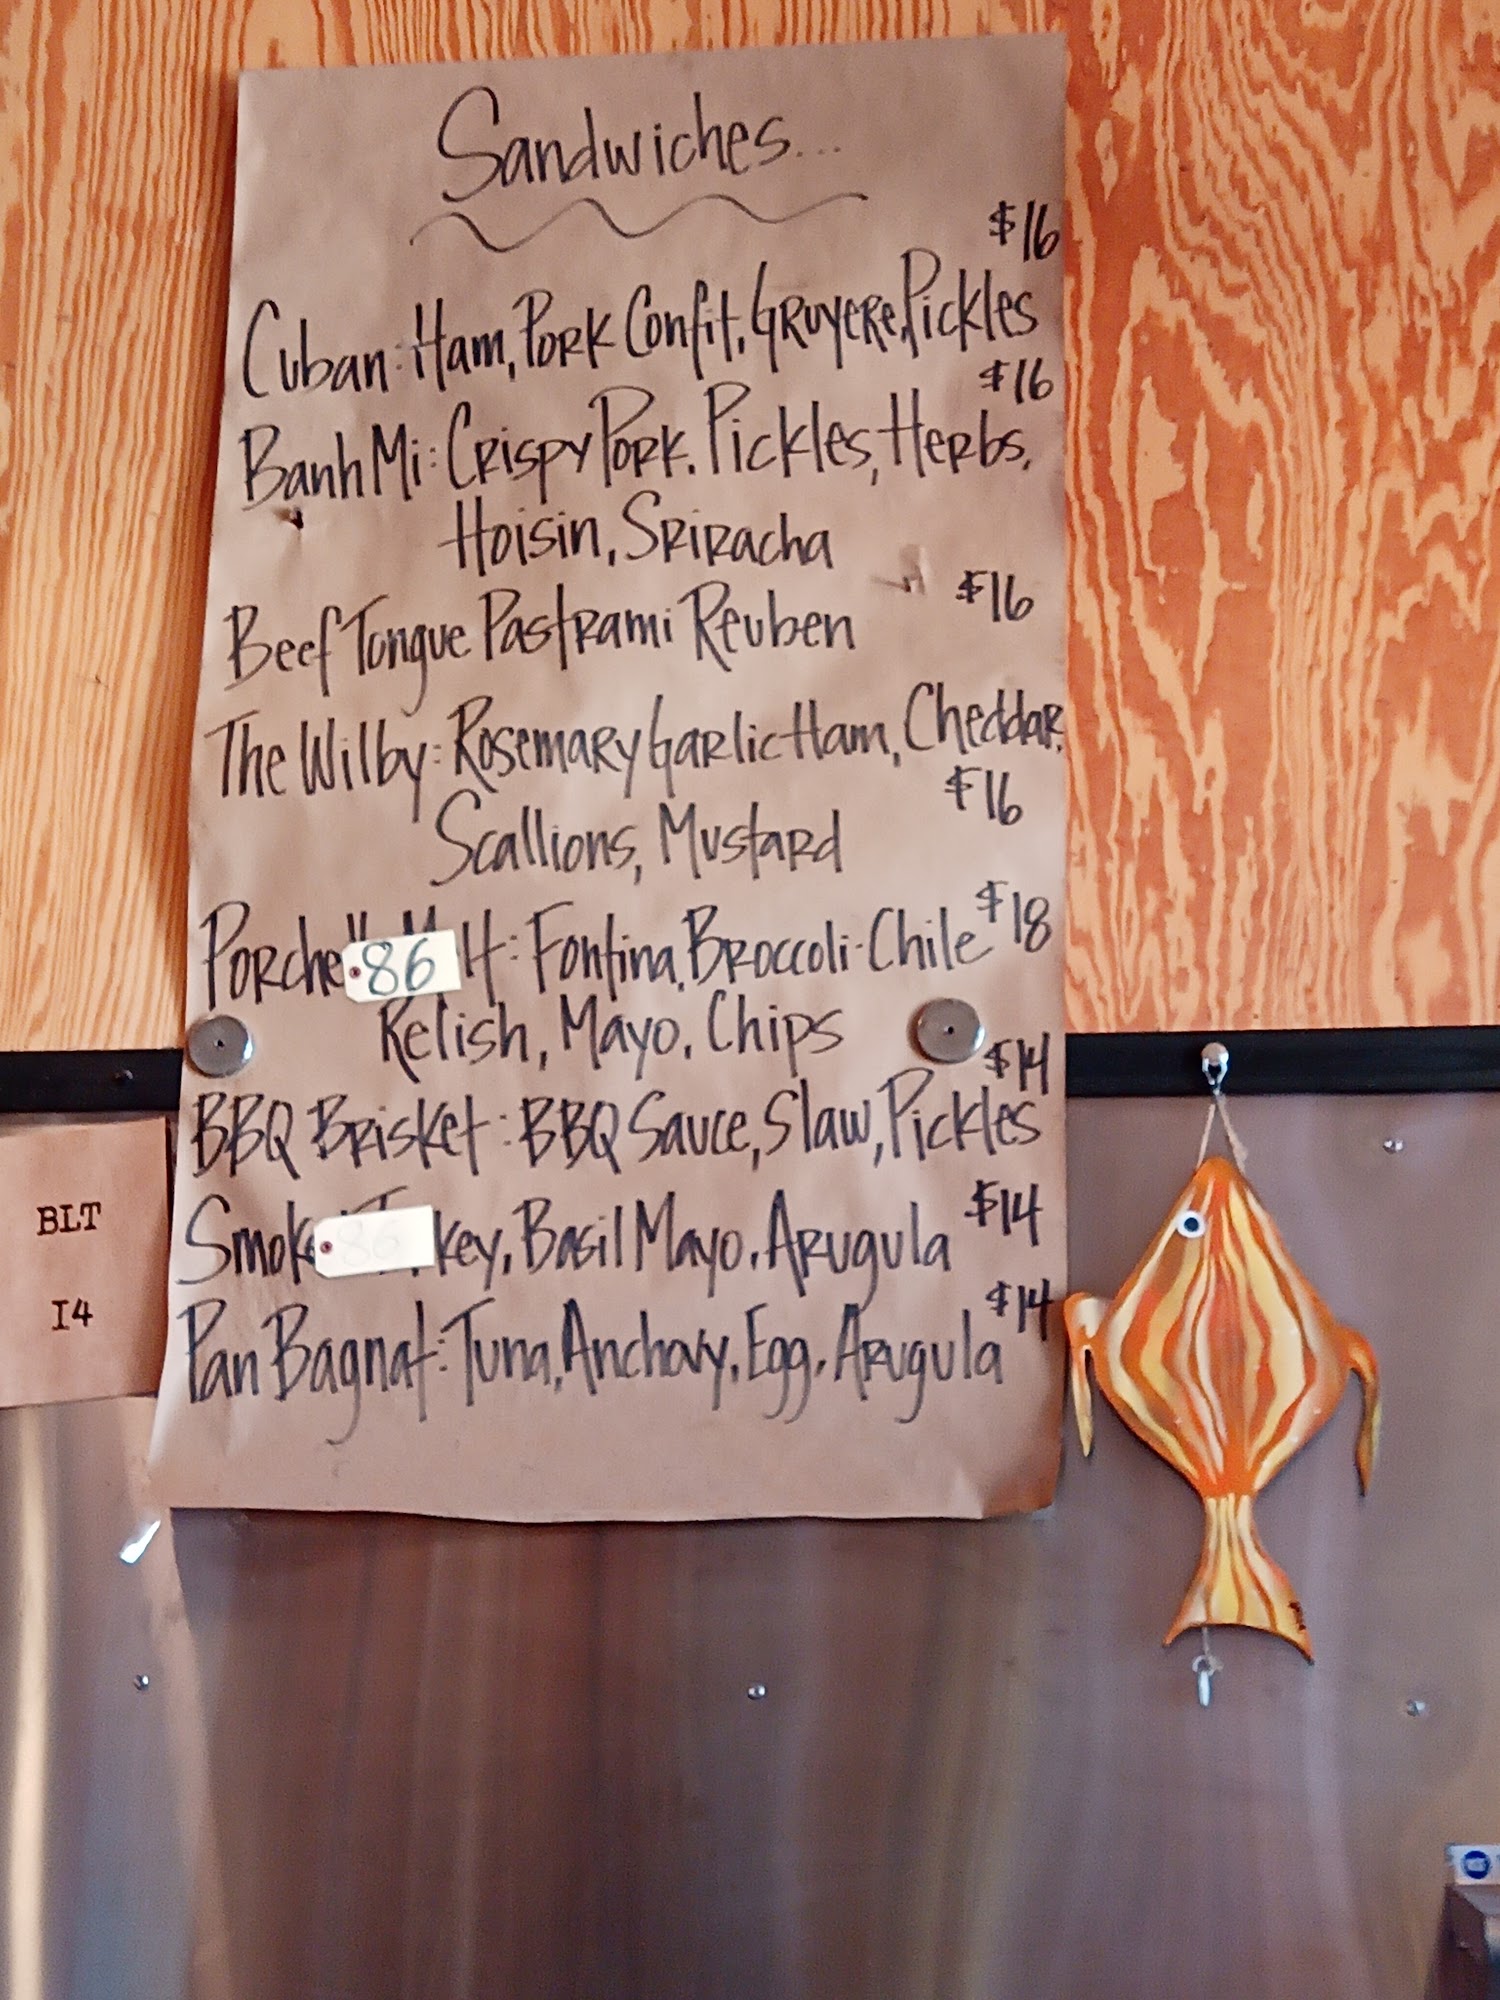 Sandwiches...
$16
Cuban: Ham, Pork Confit, Gruyere, Pickles
$16
Banh Mi: Crispy Pork. Pickles, Herbs,
Hoisin, Sriracha
Beef Tongue Pastrami Reuben $16
The Wilby: Rosemary Garlic Ham, Cheddar,
Scallions, Mustard $16
Porche 86 lt: Fontina, Broccoli-Chile $18
Relish, Mayo, Chips
$14
BBQ Brisket: BBQ Sauce, Slaw, Pickles
Smoke 86 key, Basil Mayo, Arugula $14
Pan Bagnat: Tuna, Anchovy, Egg, Arugula $14
BLT
14